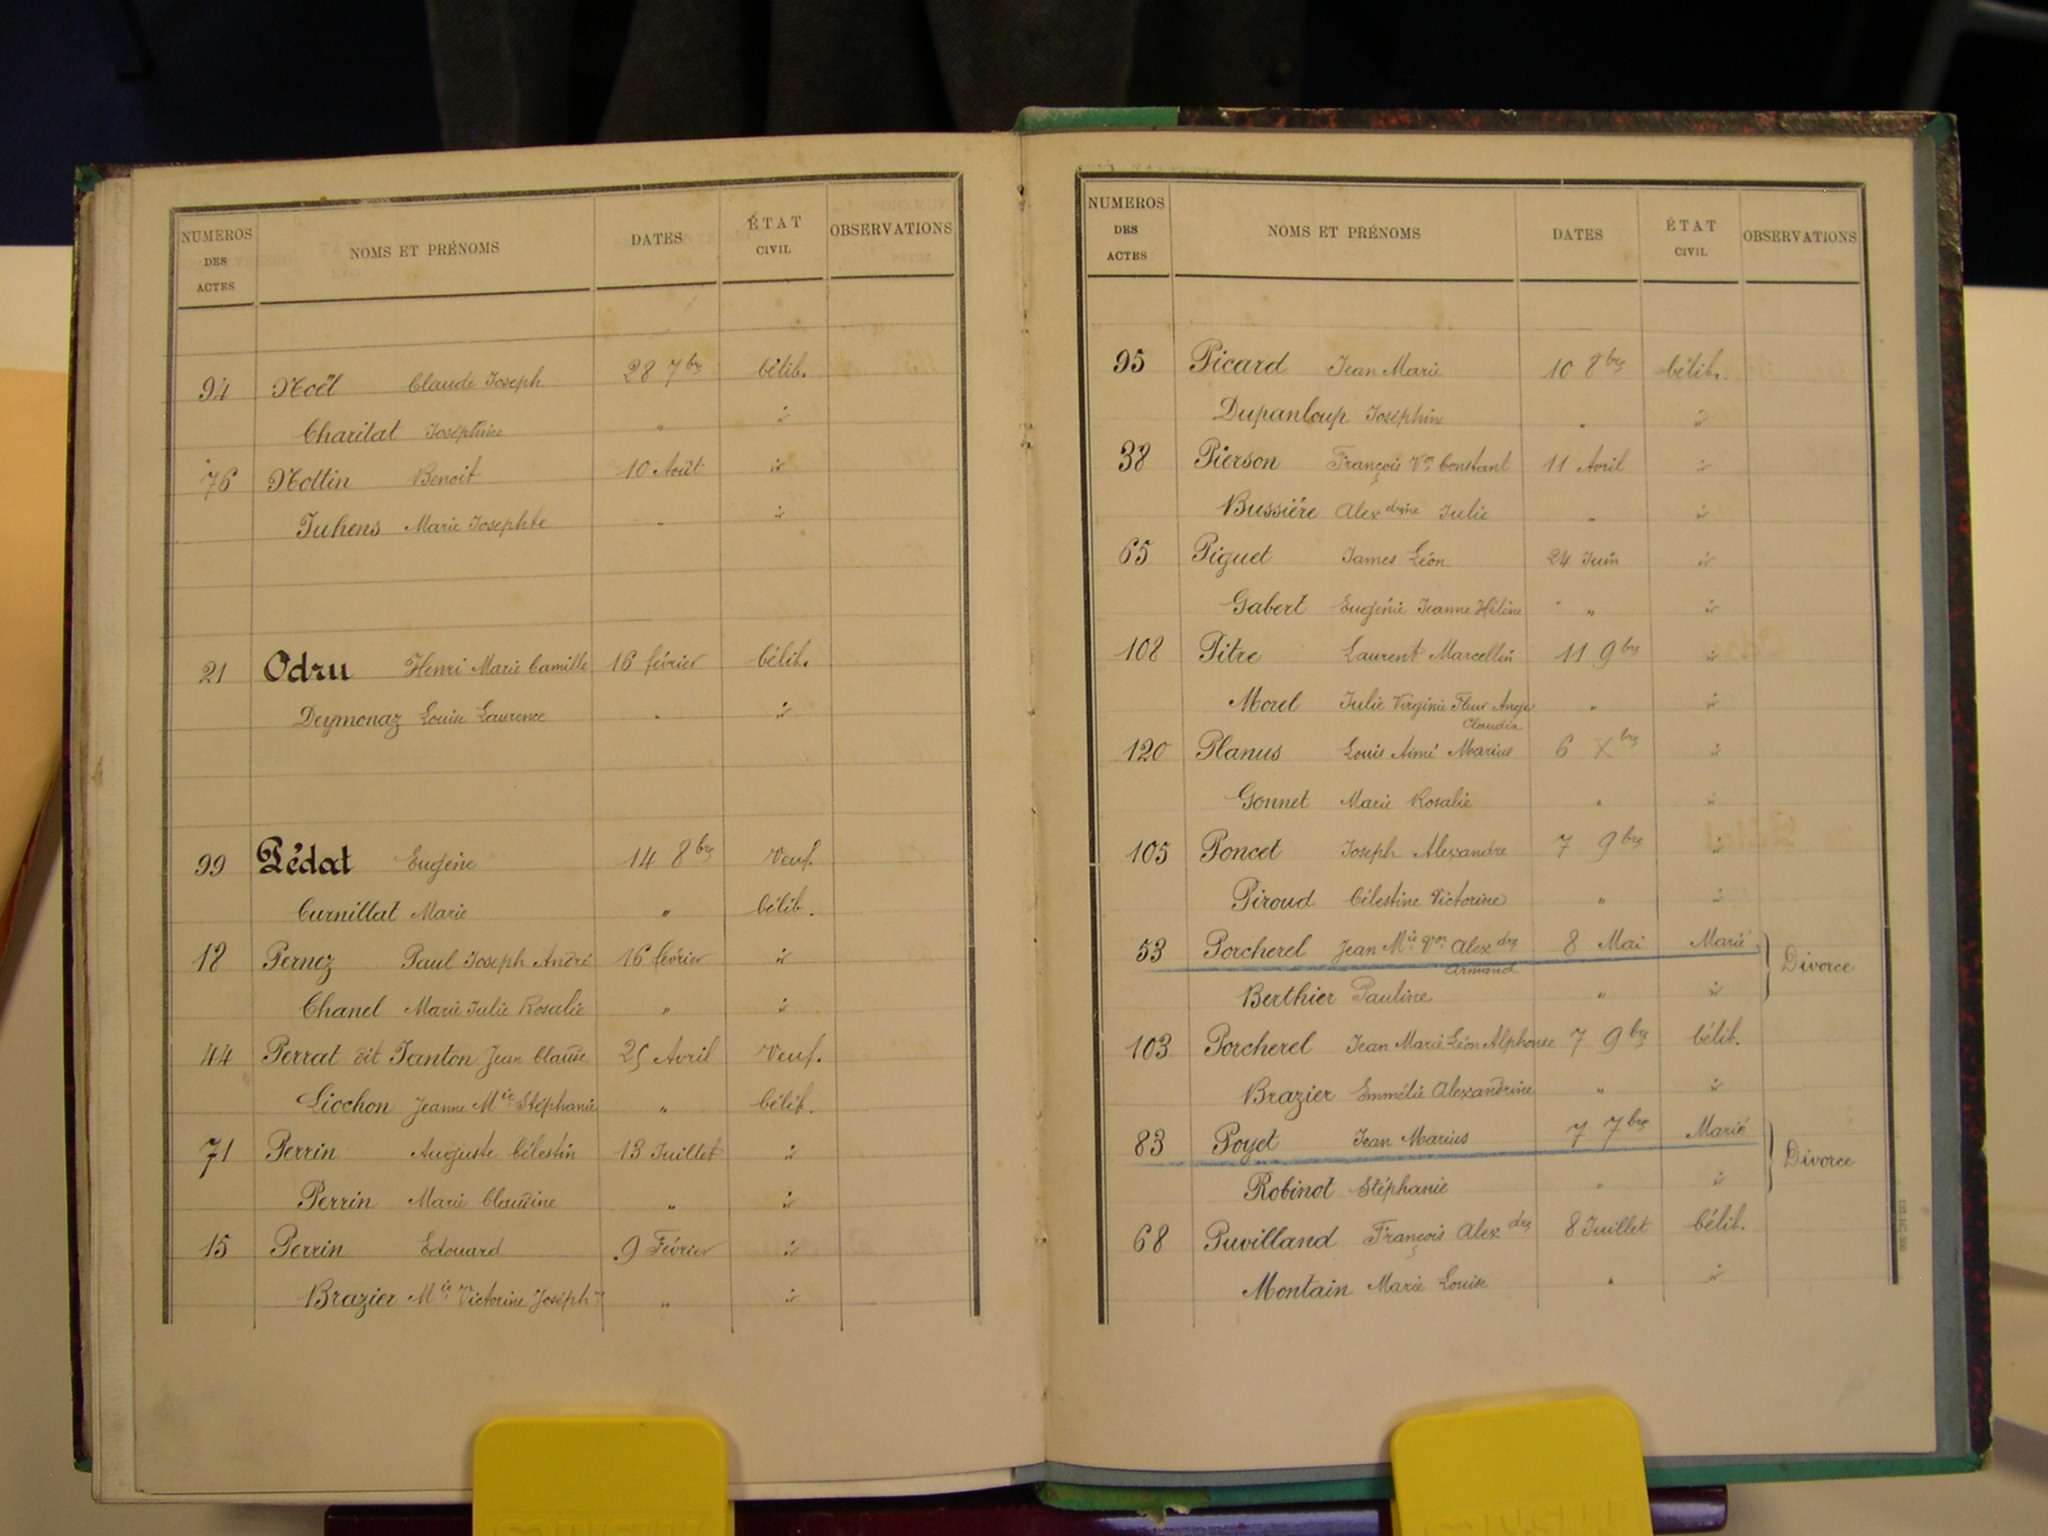 NUMEROS DES ACTES NOMS ET PRÉNOMS DATES ÉTAT CIVIL OBSERVATIONS
94 Noël Claude Joseph 28 7bre Célib.
Charitat Joséphine " id
76 Nottin Benoit 10 Août id
Juhens Marie Josephte " id
21 Odru Henri Marie Camille 16 février Célib.
Deymonaz Louise Laurence " id
99 Pédat Eugène 14 8bre Veuf.
Curnillat Marie " Célib.
18 Pernez Paul Joseph André 16 février id
Chanel Marie Julie Rosalie " id
44 Perrat dit Tanton Jean Claude 25 Avril Veuf.
Liochon Jeanne Mie Stéphanie " Célib.
71 Perrin Auguste Célestin 13 Juillet id
Perrin Marie Claudine " id
15 Perrin Edouard 9 Février id
Brazier Mie Victorine Joséphne " id
NUMEROS DES ACTES NOMS ET PRÉNOMS DATES ÉTAT CIVIL OBSERVATIONS
95 Picard Jean Marie 10 8bre Célib.
Dupanloup Joséphine " id
38 Pierson François Vor Constant 11 Avril id
Bussière Alexdrine Julie " id
65 Piguet James Léon 24 Juin id
Gabert Eugénie Jeanne Hélène " " id
108 Pitre Laurent Marcellin 11 9bre id
Morel Julie Virginie Fleur Ange Claudia " id
120 Planus Louis Aimé Marius 6 Xbre id
Gonnet Marie Rosalie " id
105 Poncet Joseph Alexandre 7 9bre id
Piroud Célestine Victorine " id
53 Porcherel Jean Mie Alexdre Armand 8 Mai Marié Divorce
Berthier Pauline " id
103 Porcherel Jean Marie Léon Alphonse 7 9bre Célib.
Brazier Emmélie Alexandrine " id
83 Poyet Jean Marius 7 7bre Marié Divorce
Robinot Stéphanie " id
68 Puvilland François Alexdre 8 Juillet Célib.
Montain Marie Louise " id